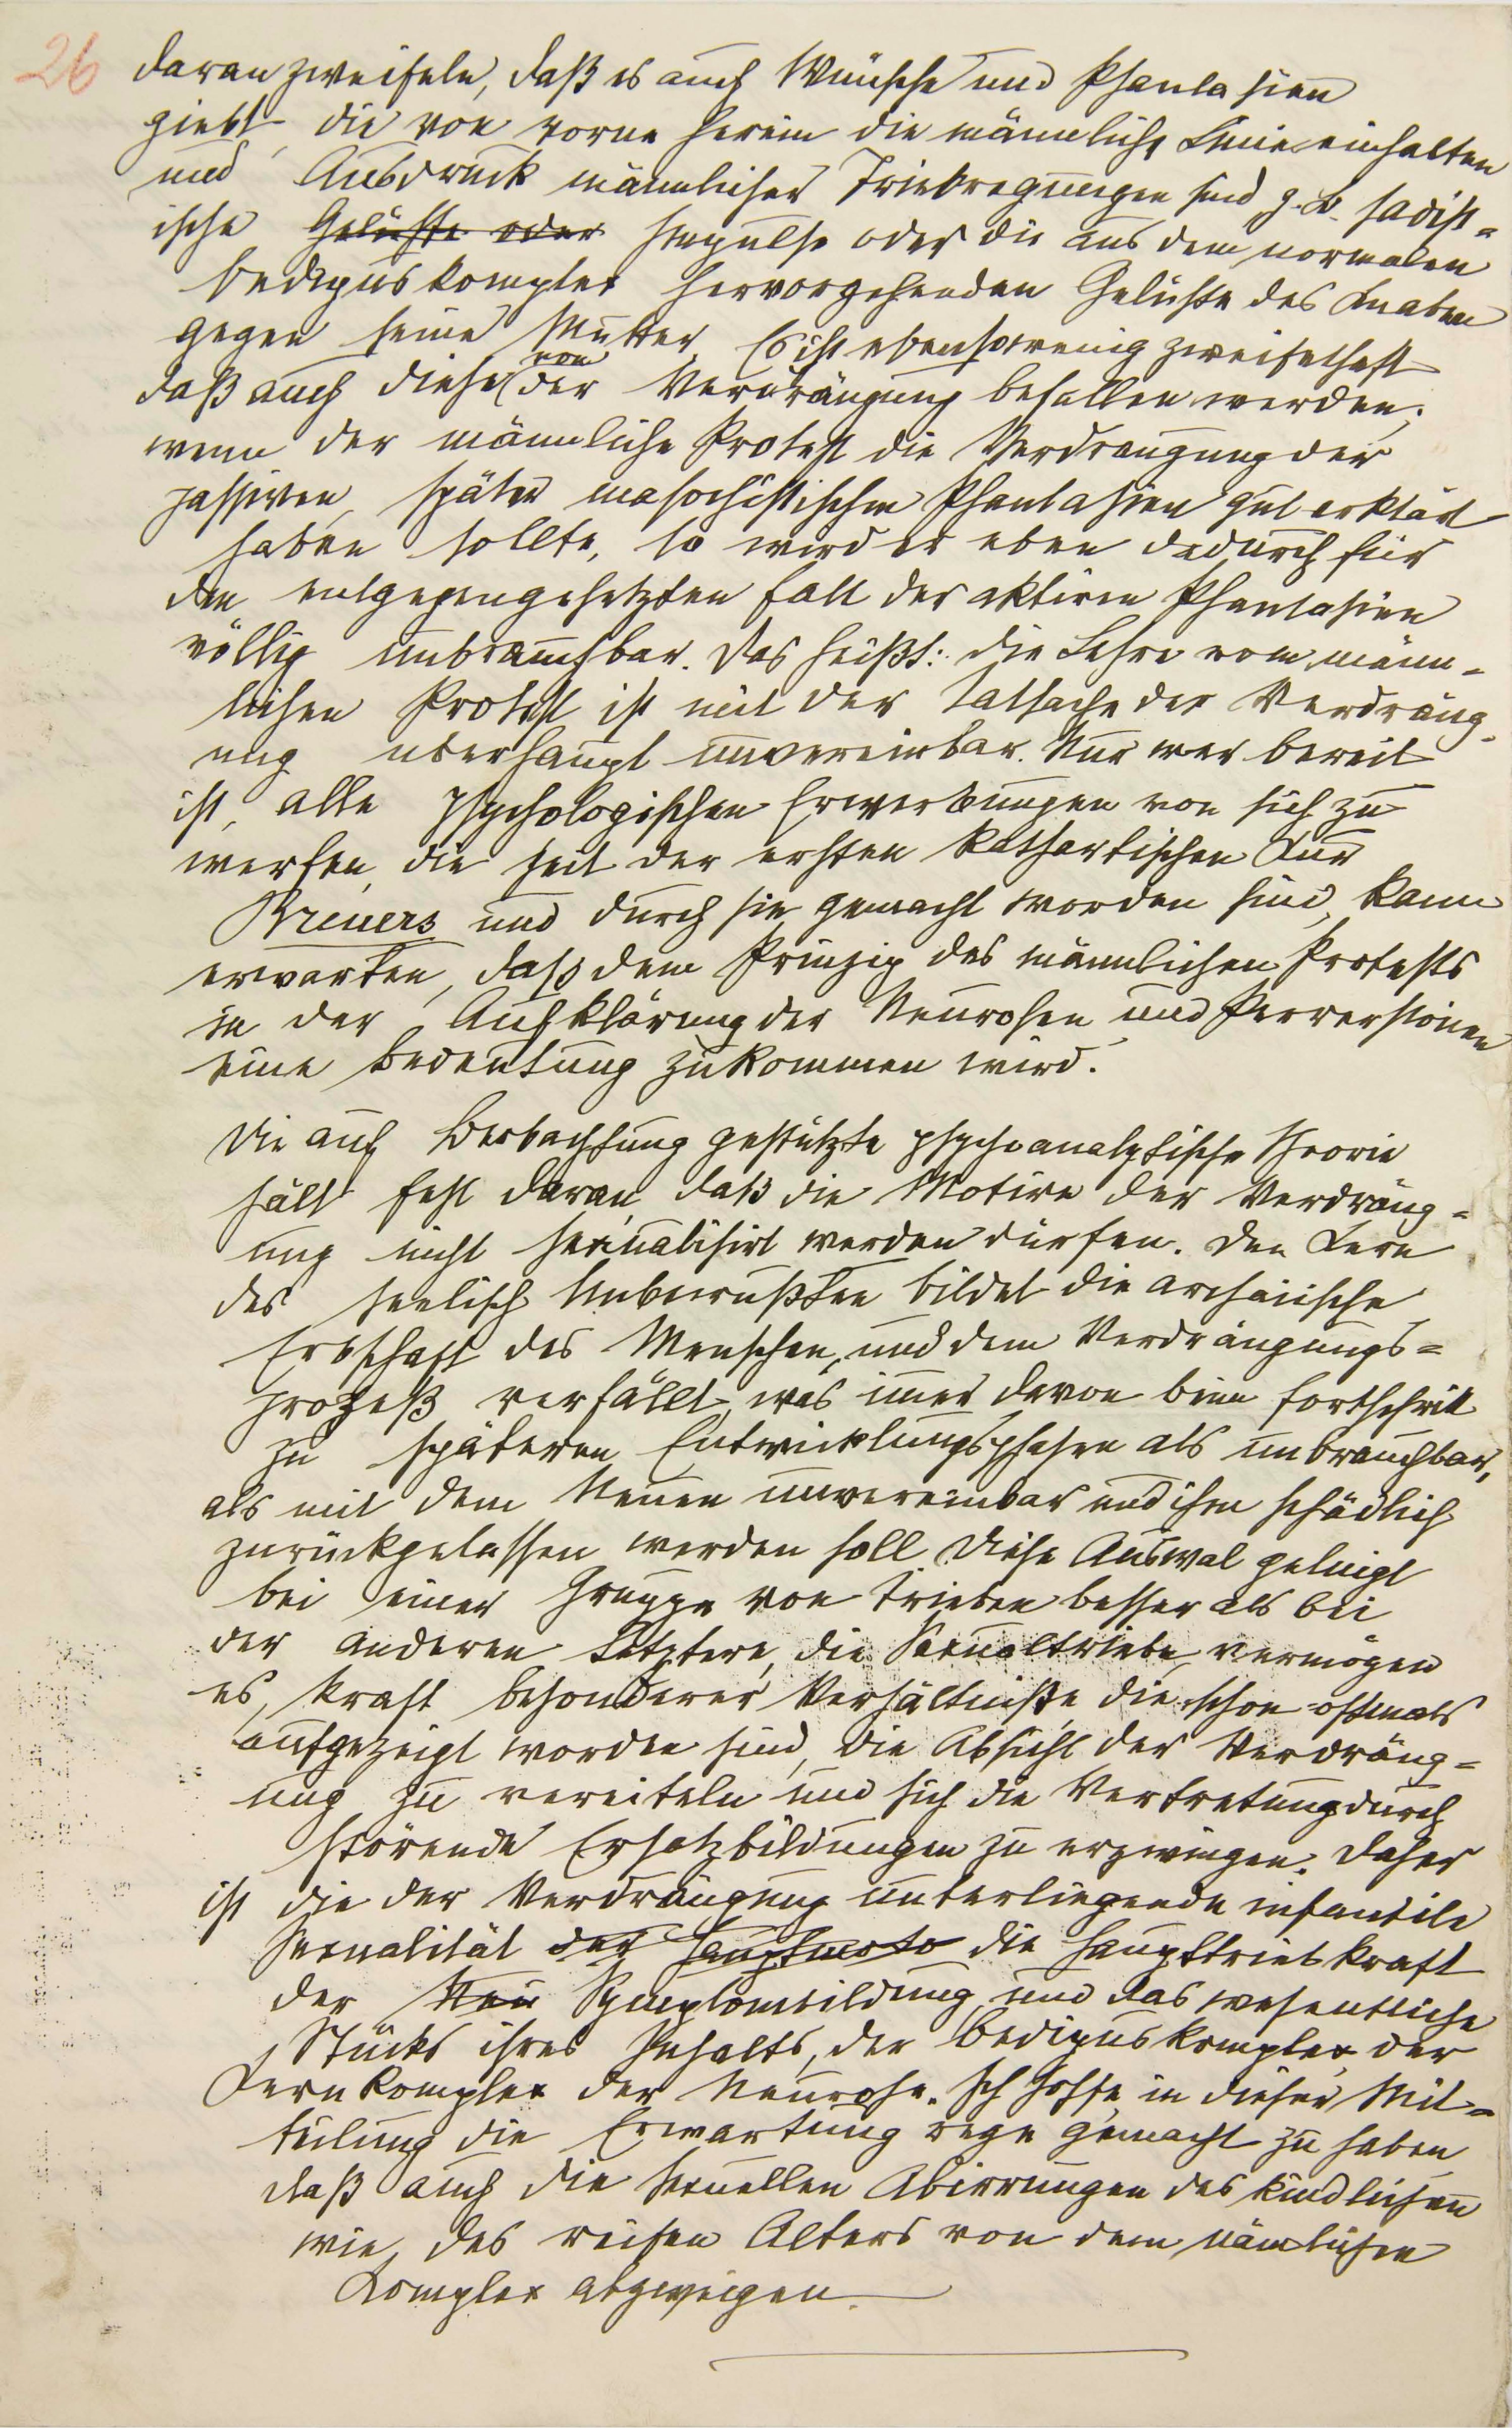 26
daran zweifeln, daß es auch Wünsche und Phantasien
giebt, die von vorne herein die männliche Linie einhalten
und Ausdruck männlicher Triebregungen sind z. B. sadist-
ische Gelüste oder Impulse oder die aus dem normalen
Oedipuskomplex hervorgehenden Gelüste des Knaben
gegen seine Mutter. Es ist ebensowenig zweifelhaft
von
daß auch diese der Verdrängung befallen werden;
wenn der männliche Protest die Verdrängung der
passiven, später masochistischen Phantasien gut erklärt
haben sollte, so wird er eben dadurch für
den entgegengesetzten Fall der aktiven Phantasien
völlig unbrauchbar. Das heißt: die Lehre vom männ-
lichen Protest ist mit der Tatsache der Verdräng-
ung überhaupt unvereinbar. Nur wer bereit
ist, alle psychologischen Erwerbungen von sich zu
werfen, die seit der ersten kathartischen Kur
Breuers und durch sie gemacht worden sind, kann
erwarten, daß dem Prinzip des männlichen Protests
in der Aufklärung der Neurosen und Perversionen
eine Bedeutung zukommen wird.
Die auf Beobachtung gestützte psychoanalytische Theorie
hält fest daran, daß die Motive der Verdräng=
ung nicht sexualisirt werden dürfen. Den Kern
des seelisch Unbewußten bildet die archaische
Erbschaft des Menschen, und dem Verdrängungs=
prozeß verfällt, was immer davon beim Fortschritt
zu späteren Entwicklungsphasen als unbrauchbar,
als mit dem Neuen unvereinbar und ihm schädlich
zurückgelassen werden soll. Diese Auswal gelingt
bei einer Gruppe von Trieben besser als bei
der anderen. Letztere, die Sexualtriebe, vermögen
es, kraft besonderer Verhältniße, die schon oftmals
aufgezeigt worden sind, die Absicht der Verdräng=
ung zu vereiteln und sich die Vertretung durch
störende Ersatzbildungen zu erzwingen. Daher
ist die der Verdrängung unterliegende infantile
Sexualität der Hauptmoto die Haupttriebkraft
der Neu Symptombildung, und das wesentliche
Stück ihres Inhalts, der Oedipuskomplex, der
Kernkomplex der Neurose. Ich hoffe, in dieser Mit=
teilung die Erwartung rege gemacht zu haben
daß auch die sexuellen Abirrungen des kindlichen
wie des reifen Alters von dem nämlichen
Komplex abzweigen.